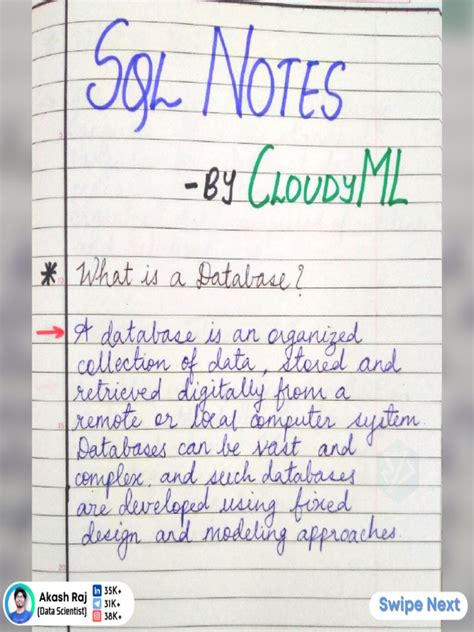 SQL NOTES
- BY CLOUDYML
* What is a Database?
→ A database is an organized
collection of data, stored and
retrieved digitally from a
remote or local computer system.
Databases can be vast and
complex, and such databases
are developed using fixed
design and modeling approaches.
Akash Raj
(Data Scientist)
in 35K+
31K+
38K+
Swipe Next